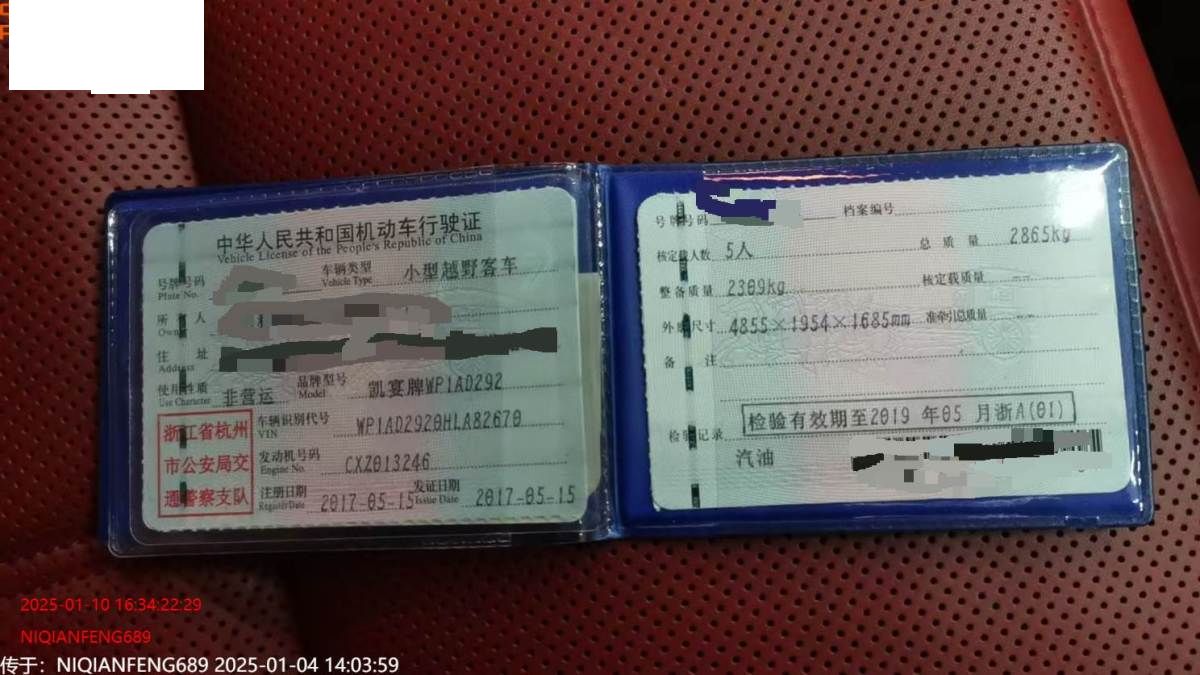 中华人民共和国机动车行驶证
Vehicle License of the People's Republic of China
号牌号码 车辆类型 小型越野客车
Plate No. Vehicle Type
所 人
Owner
住 址
Address
使用性质 非营运 品牌型号 凯宴牌WP1AD292
Use Character Model
浙江省杭州
市公安局交
通警察支队
车辆识别代号 WP1AD2920HLA82670
VIN
发动机号码 CXZ013246
Engine No.
注册日期 2017-05-15 发证日期 2017-05-15
Register Date Issue Date
号牌号码 档案编号
核定载人数 5人 总质量 2865kg
整备质量 2309kg 核定载质量 --
外廓尺寸 4855×1954×1685mm 准牵引总质量 --
备 注
检验记录 检验有效期至2019 年05 月浙A(01)
汽油
2025-01-10 16:34:22:29
NIQIANFENG689
传于：NIQIANFENG689 2025-01-04 14:03:59